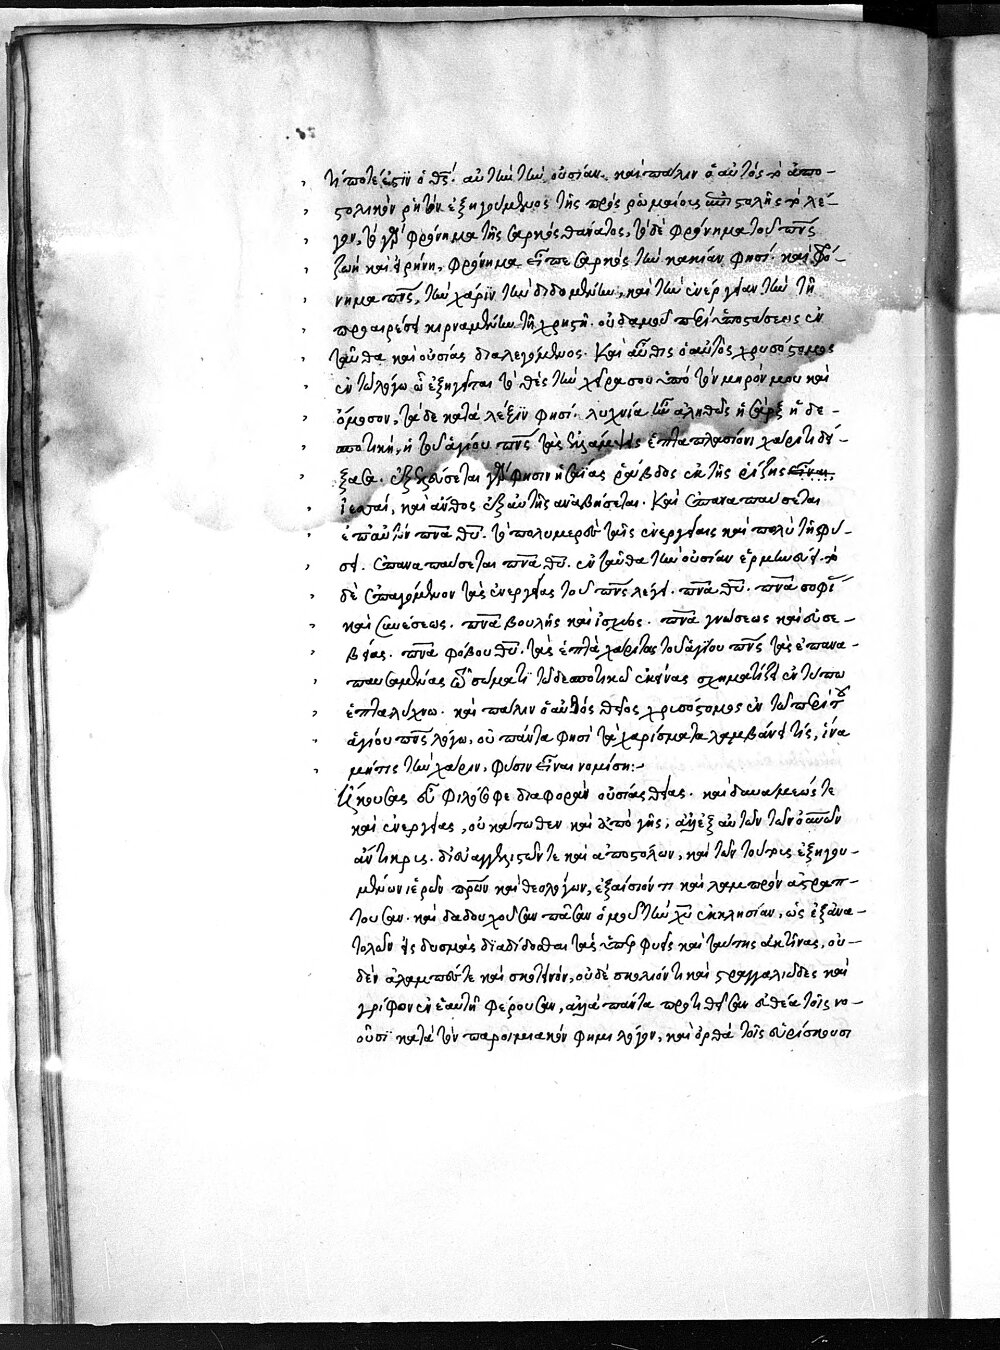 τί ποτέ ἐστιν ὁ θς. αὐτὴν τὴν οὐσίαν. καὶ πάλιν ὁ αὐτὸς τὸ ἀπο-
στολικὸν ῥητὸν ἐξηγούμενος τῆς πρὸς ῥωμαίους ἐπιστολῆς τὸ λέ-
γον, τὸ γὰρ φρόνημα τῆς σαρκὸς θάνατος, τὸ δὲ φρόνημα τοῦ πνς
ζωὴ καὶ εἰρήνη, φρόνημα εἶπε σαρκὸς τὴν κακίαν φησί. καὶ φρό-
νημα πνς, τὴν χάριν τὴν διδομένην, καὶ τὴν ἐνέργειαν τὴν τῇ
προαιρέσει κιρναμένην τῇ χρηστῇ. οὐδαμοῦ περὶ ὑποστάσεως ἐν
ταῦθα καὶ οὐσίας διαλεγόμενος. Καὶ αὖθις ὁ αὐτὸς χρυσόστομος
ἐν τῷ λόγῳ ᾧ ἐξηγεῖται τὸ θὲς τὴν χεῖρα σου ὑπὸ τὸν μηρόν μου καὶ
ὄμοσον, τάδε κατὰ λέξιν φησί. λυχνία ἦν ἀληθῶς ἡ σὰρξ ἡ δε-
σποτικὴ, ἡ τοῦ ἁγίου πνς τὰς ἐλλάμψεις ἑπταπλασίονι χάριτι δεί-
ξασα. ἐξελεύσεται γὰρ φησὶν ἡσαΐας ῥάβδος ἐκ τῆς ῥίζης εἶναι
ἰεσσαί, καὶ ἄνθος ἐξ αὐτῆς ἀναβήσεται. Καὶ ἐπαναπαύσεται
ἐπ αὐτὸν πνα θυ. τὸ πολυμερὸν ταῖς ἐνεργείαις καὶ πολὺ τῇ φύ-
σει. ἐπαναπαύσεται πνα θυ. ἐνταῦθα τὴν οὐσίαν ἑρμηνεύει. τὸ
δὲ ἐπαγόμενον τὰς ἐνεργείας τοῦ πνς λέγει. πνα θυ. πνα σοφί
καὶ συνέσεως. πνα βουλῆς καὶ ἰσχύος. πνα γνώσεως καὶ εὐσε-
βείας. πνα φόβου θυ. τὰς ἑπτὰ χάριτας τοῦ ἁγίου πνς τὰς ἐπανα-
παυσαμένας τῷ σώματι τῷ δεσποτικῷ ἐκείνας σχηματίζει ἐν τύπῳ
ἑπταλύχνῳ. καὶ πάλιν ὁ αὐτὸς θεῖος χρυσόστομος ἐν τῷ περὶ τοῦ
ἁγίου πνς λόγῳ, οὐ πάντα φησὶ τὰ χαρίσματα λαμβάνει τίς, ἵνα
μή τις τὴν χάριν, φύσιν εἶναι νομίση:-
Ἤκουσας ὦ φιλόσοφε διαφορὰν οὐσίας θείας. καὶ δυνάμεώς τε
καὶ ἐνεργείας, οὐ κάτωθεν καὶ ἀπὸ γῆς, ἀλλ ἐξ αὐτῶν τῶν ουνων
ἄντικρυς. δι εὐαγγελιστῶν τε καὶ ἀποστόλων, καὶ τῶν τούτοις ἐξηγου-
μένων ἱερῶν πρων καὶ θεολόγων, ἐξαίσιόν τι καὶ λαμπρὸν ἀστράπ-
τουσαν. καὶ δᾳδουχοῦσαν πᾶσαν ὁμοῦ τὴν χυ ἐκκλησίαν, ὡς ἐξ ἀνα-
τολῶν εἰς δυσμὰς διαδίδοσθαι τὰς ὑπερφυεῖς καὶ ταύτης ἀκτῖνας, οὐ-
δὲν ἀλαμπές τε καὶ σκοτεινὸν, οὐδὲ σκολιόν τι καὶ στραγγαλιῶδες καὶ
γρίφον ἐν ἑαυτῇ φέρουσαν, ἀλλὰ πάντα προτιθεῖσαν εὐθέα τοῖς νο-
οῦσι κατὰ τὸν παροιμιακὸν φημὶ λόγον, καὶ ὀρθὰ τοῖς εὑρίσκουσι